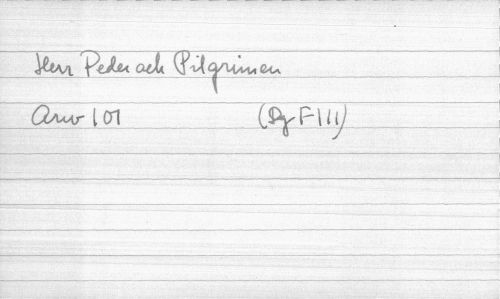 Herr Peder och Pilgrimen
Arw 101 (Dg F III)